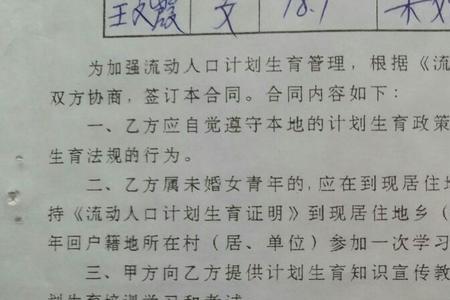 王文霞 女 78.1 未婚
为加强流动人口计划生育管理，根据《流
双方协商，签订本合同。合同内容如下：
一、乙方应自觉遵守本地的计划生育政策
生育法规的行为。
二、乙方属未婚女青年的，应在到现居住地
持《流动人口计划生育证明》到现居住地乡（
年回户籍地所在村（居、单位）参加一次学习
三、甲方向乙方提供计划生育知识宣传教
划生育培训学习和考试